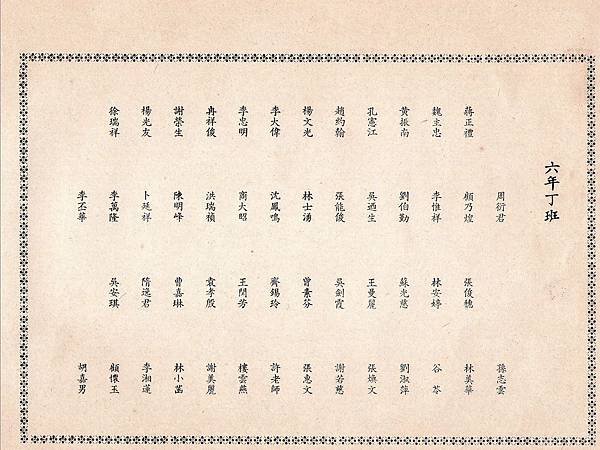 六年丁班
周衍君 孫志雲
蔣正禮 顧乃煌 張俊穗 林美華
魏主忠 李惟祥 林安婷 谷苓
黃振南 劉伯勤 蘇光慈 劉淑萍
孔憲江 吳迺生 王曼麗 張嬿文
趙約翰 張能俊 吳劍霞 謝若慈
楊文光 林士湧 曾素芬 張惠文
李大偉 沈鳳鳴 齊錫玲 許老師
李忠明 商大昭 王開芳 樓雲燕
冉祥俊 洪瑞禎 袁孝殷 謝美麗
謝榮生 陳明峰 曹嘉琳 林小菡
楊光友 卜廷祥 隋逸君 李湘蓮
徐瑞祥 李萬隆 吳安琪 顧懷玉
李丕華 胡嘉男